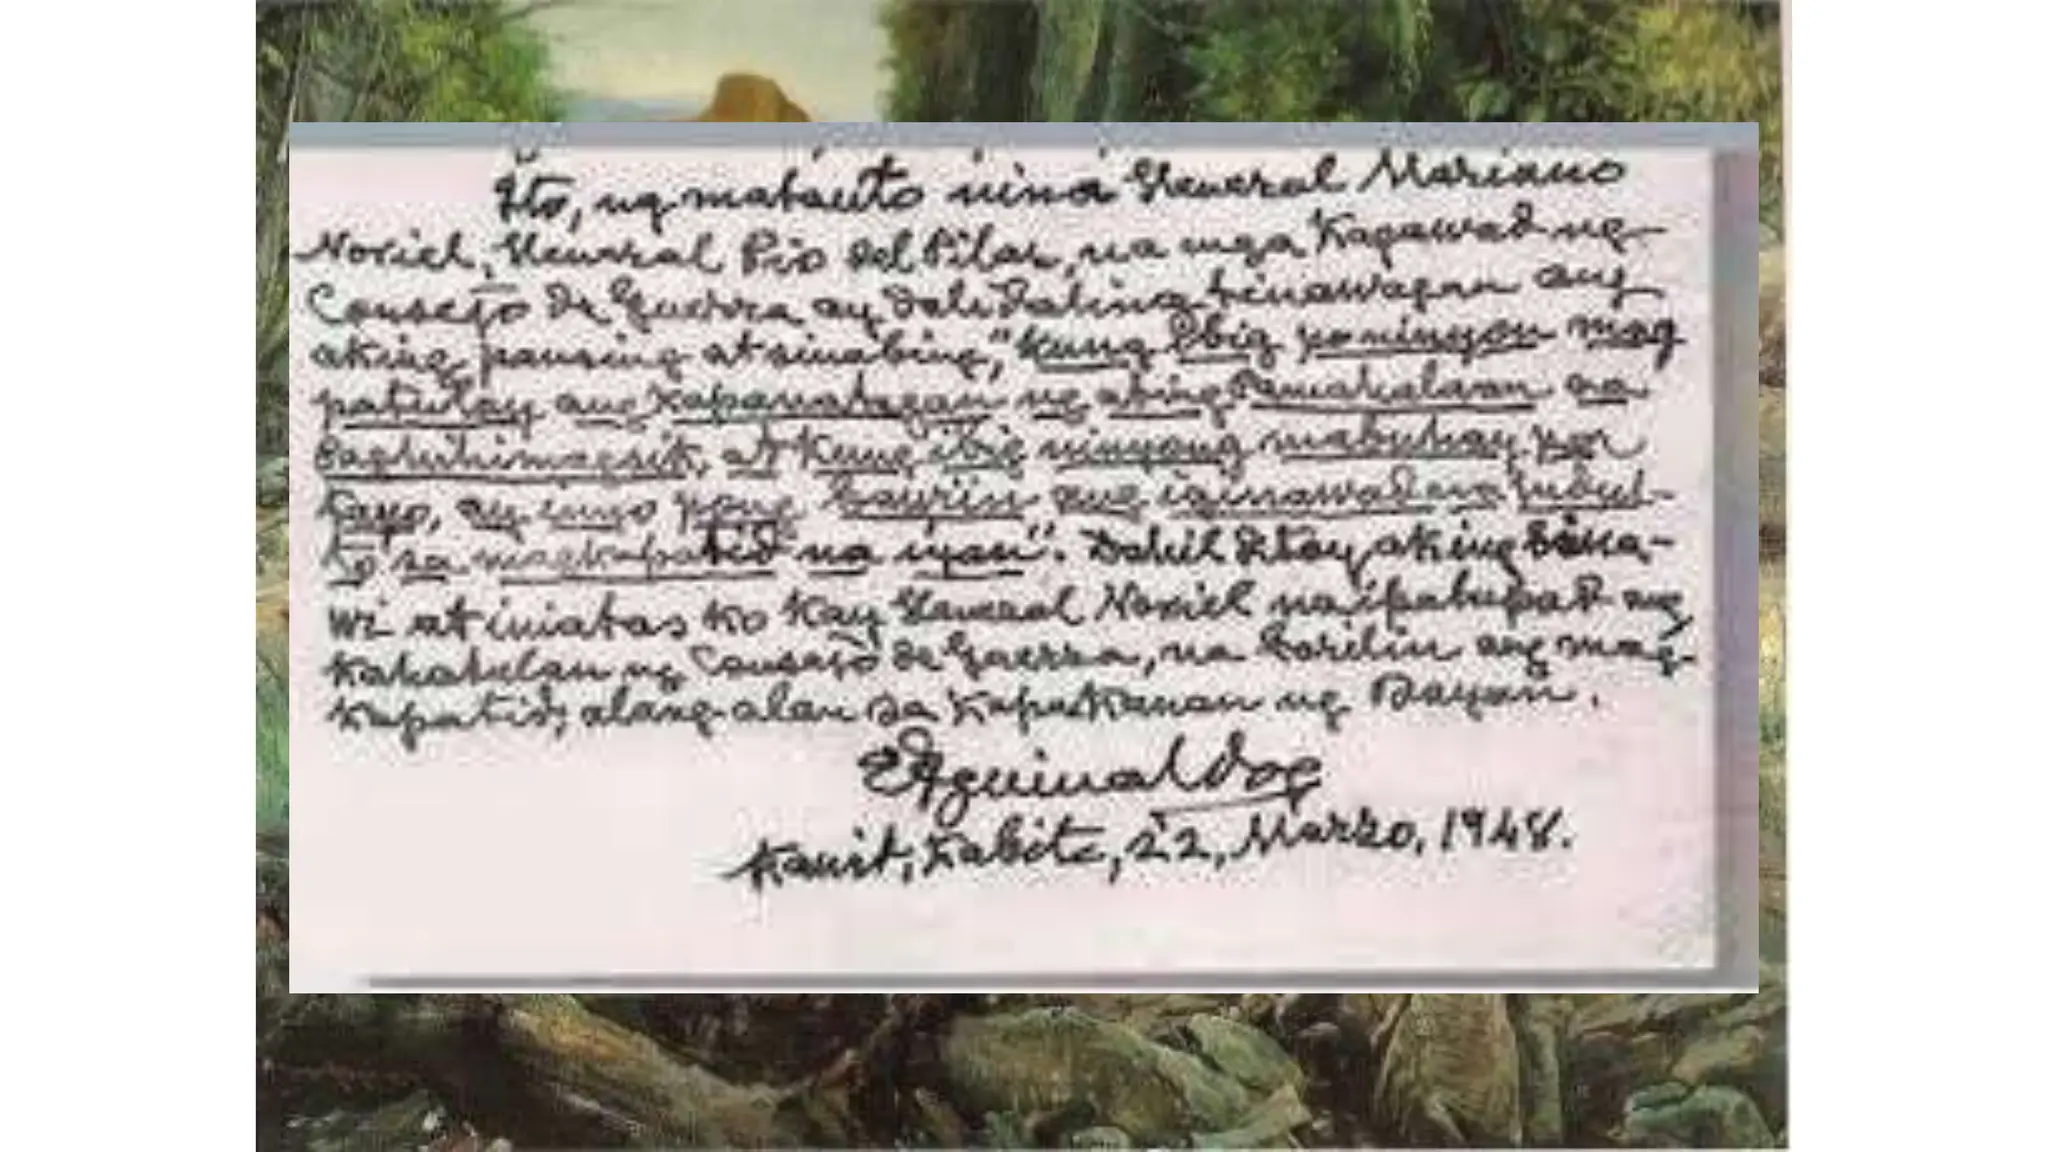 Ito, ng matauto nina General Mariano
Noriel, General Pio del Pilar, na mga Kagawad ng
Consejo de Guerra ay dalidaling binawagan ang
aking pansing at sinabing, "Kung ibig po ninyou mag
patuloy ang kapanatagan ng ating Pamahalaan na
Paghihimagsik, at kung ibig ninyong mabuhay pa
kayo, ay inyo pong bawiin ang iginawad na indul-
to sa magkapatid na iyan". Dahil dito'y aking bina-
wi at iniatas ko kay General Noriel na ipatupad ang
kahatulan ng Consejo de Guerra, na barilin ang mag-
kapatid, alang-alan sa kapakanan ng Bayan.
EAguinaldo
Kawit, Kabite, 22, Marzo, 1948.